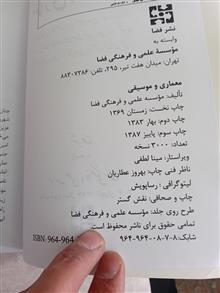 نشر فضا
وابسته به
مؤسسهٔ علمی و فرهنگی فضا
تهران: میدان هفت تیر، ۲۹۵، تلفن: ۸۸۳۰۷۳۸۶
معماری و موسیقی
تألیف: مؤسسه علمی و فرهنگی فضا
چاپ نخست: زمستان ۱۳۶۹
چاپ دوم: بهار ۱۳۸۳
چاپ سوم: پاییز ۱۳۸۷
تعداد: ۳۰۰۰ نسخه
ویراستار: مینا لطفی
ناظر فنی چاپ: بهروز عطاریان
لیتوگرافی: رساپویش
چاپ و صحافی: نقش گستر
طرح روی جلد: مؤسسه علمی و فرهنگی فضا
تمامی حقوق برای ناشر محفوظ است.
شابک: ۸-۷-۰۸-۹۶۴-۹۶۴
ISBN: 964-964